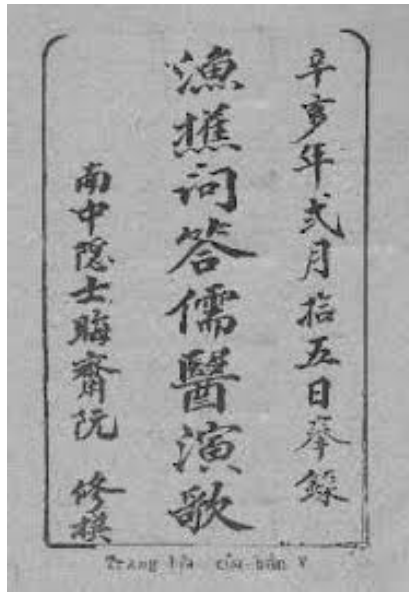 辛亥年弍月拾五日奉錄
漁樵问答儒醫演歌
南中隐士晦齋阮 修撰
Trang bìa của bản V